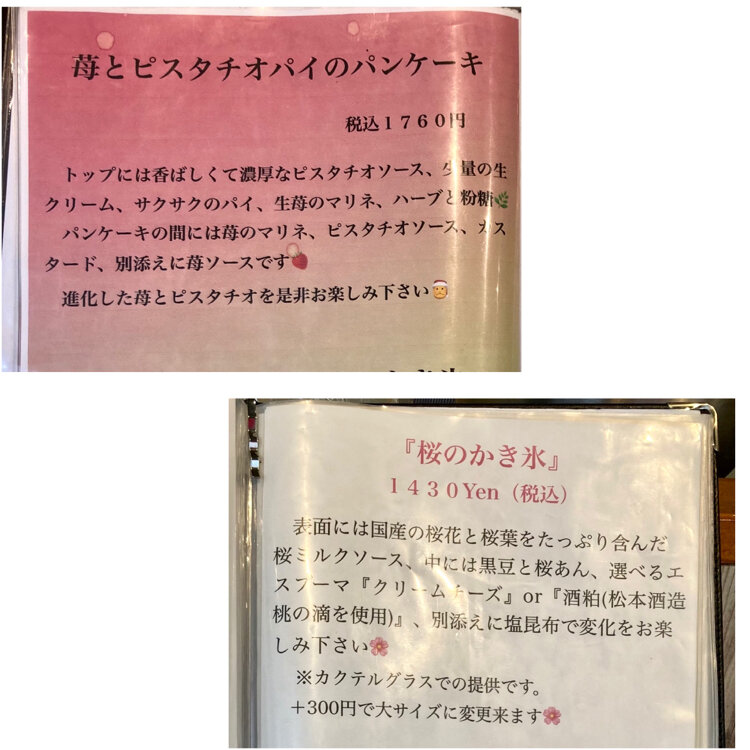 苺とピスタチオパイのパンケーキ
税込１７６０円
トップには香ばしくて濃厚なピスタチオソース、少量の生
クリーム、サクサクのパイ、生苺のマリネ、ハーブと粉糖🌿
パンケーキの間には苺のマリネ、ピスタチオソース、カス
タード、別添えに苺ソースです🍓
進化した苺とピスタチオを是非お楽しみ下さい🎅
『桜のかき氷』
１４３０Yen（税込）
表面には国産の桜花と桜葉をたっぷり含んだ
桜ミルクソース、中には黒豆と桜あん、選べるエ
スプーマ『クリームチーズ』or『酒粕(松本酒造
桃の滴を使用)』、別添えに塩昆布で変化をお楽
しみ下さい🌸
※カクテルグラスでの提供です。
＋300円で大サイズに変更来ます🌸